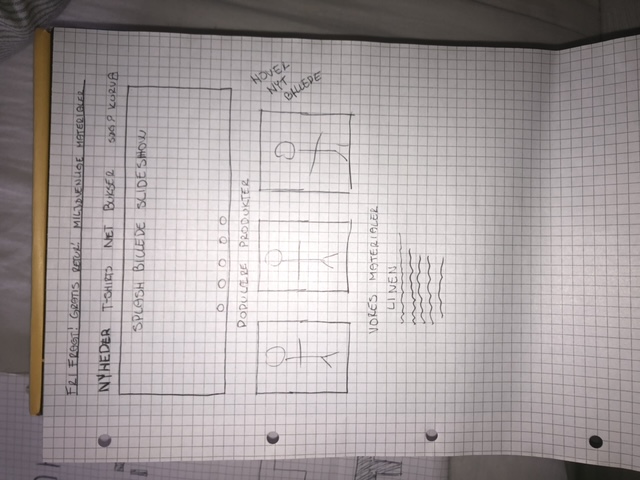 FRI FRAGT! GRATIS RETUR! MILJØVENLIGE MATERIALER
NYHEDER T-SHIRTS NET BUKSER SØG? KURV
SPLASH BILLEDE SLIDESHOW
POPULÆRE PRODUKTER
HOVER
NYT
BILLEDE
VORES MATERIALER
LINEN